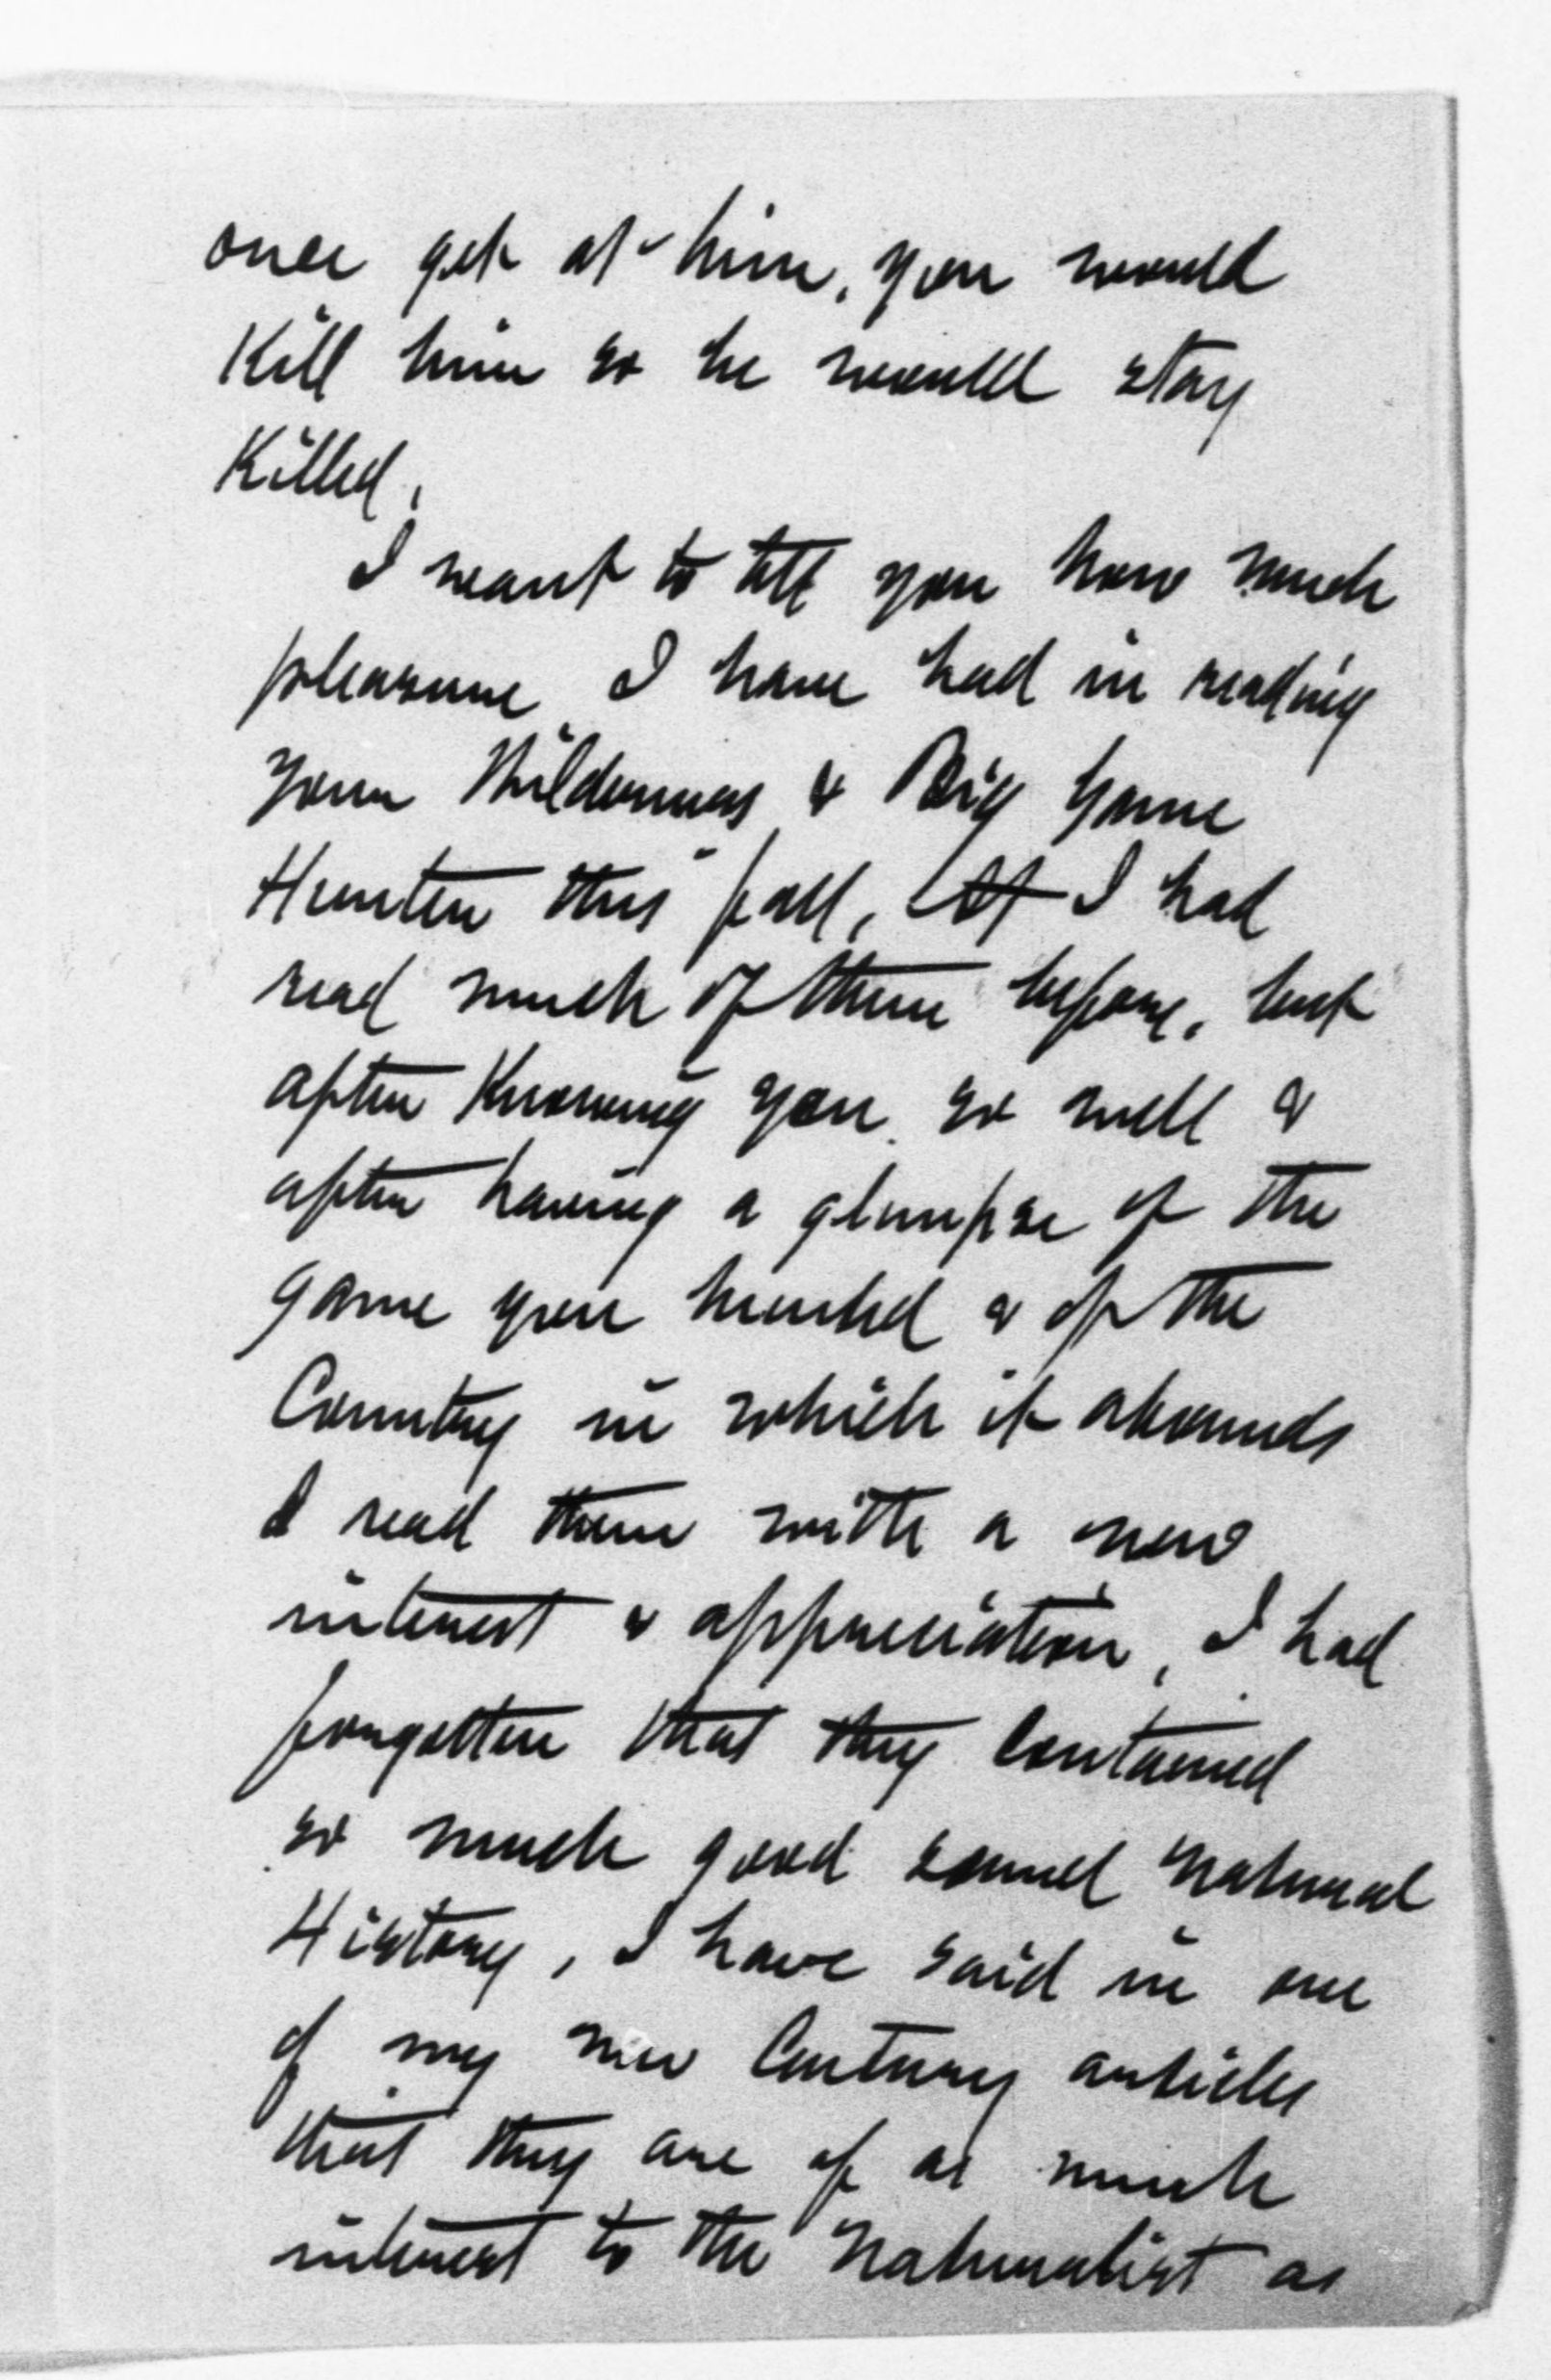 once get at him, you would
Kill him so he would stay
Killed.
I want to tell you how much
pleasure I have had in reading
your Wilderness & Big Game
Hunter this fall, I had
read much of them before, but
after Knowing you so well &
after having a glimpse of the
game you hunted & of the
Country in which it abounds
I read them with a new
interest & appreciation, I had
forgotten that they Contained
so much good sound natural
History, I have said in one
of my new Century articles
that they are of as much
interest to the naturalist as